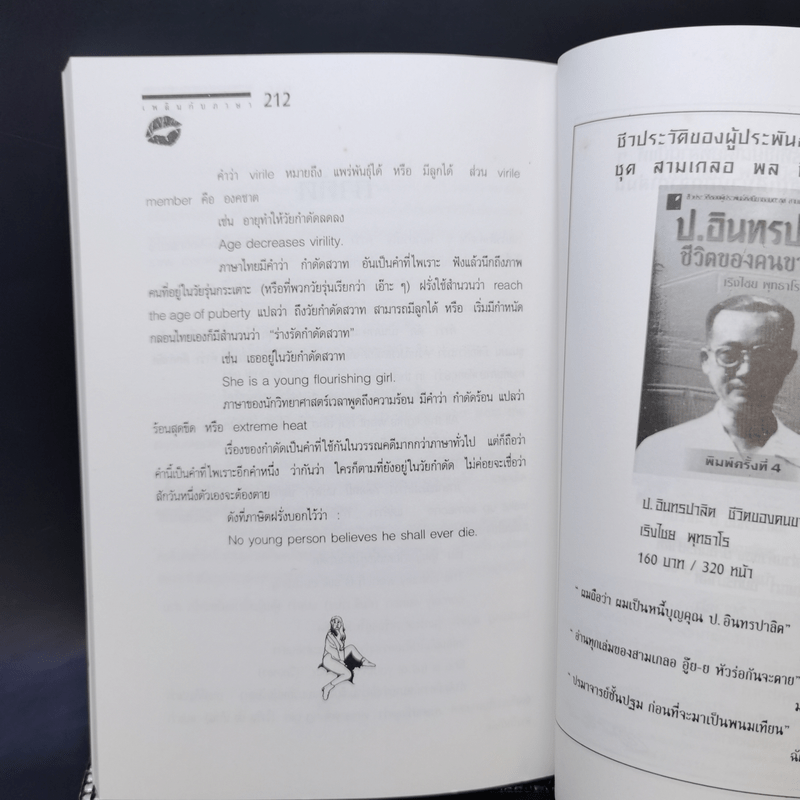 เพลินกับภาษา 212
คำว่า virile หมายถึง แพร่พันธุ์ได้ หรือ มีลูกได้ ส่วน virile
member คือ องคชาต
เช่น อายุทำให้วัยกำดัดลดลง
Age decreases virility.
ภาษาไทยมีคำว่า กำดัดสวาท อันเป็นคำที่ไพเราะ ฟังแล้วนึกถึงภาพ
คนที่อยู่ในวัยรุ่นกระเตาะ (หรือที่พวกวัยรุ่นเรียกว่า เอ๊าะ ๆ) ฝรั่งใช้สำนวนว่า reach
the age of puberty แปลว่า ถึงวัยกำดัดสวาท สามารถมีลูกได้ หรือ เริ่มมีกำหนัด
กลอนไทยเองก็มีสำนวนว่า "ร่างรัดกำดัดสวาท"
เช่น เธออยู่ในวัยกำดัดสวาท
She is a young flourishing girl.
ภาษาของนักวิทยาศาสตร์เวลาพูดถึงความร้อน มีคำว่า กำดัดร้อน แปลว่า
ร้อนสุดขีด หรือ extreme heat
เรื่องของกำดัดเป็นคำที่ใช้กันในวรรณคดีมากกว่าภาษาทั่วไป แต่ก็ถือว่า
คำนี้เป็นคำที่ไพเราะอีกคำหนึ่ง ว่ากันว่า ใครก็ตามที่ยังอยู่ในวัยกำดัด ไม่ค่อยจะเชื่อว่า
สักวันหนึ่งตัวเองจะต้องตาย
ดังที่ภาษิตฝรั่งบอกไว้ว่า :
No young person believes he shall ever die.
ชีวประวัติของผู้ประพันธ์
ชุด สามเกลอ พล
ป.อินทรปา
ชีวิตของคนขา
เริงไชย พุทธาโร
พิมพ์ครั้งที่ 4
ป. อินทรปาลิต ชีวิตของคนขา
เริงไชย พุทธาโร
160 บาท / 320 หน้า
"ผมถือว่า ผมเป็นหนี้บุญคุณ ป. อินทรปาลิต"
"อ่านทุกเล่มของสามเกลอ อู๊ย-ย หัวร่อกันจะตาย"
"ปรมาจารย์ชั้นปฐม ก่อนที่จะมาเป็นพนมเทียน"